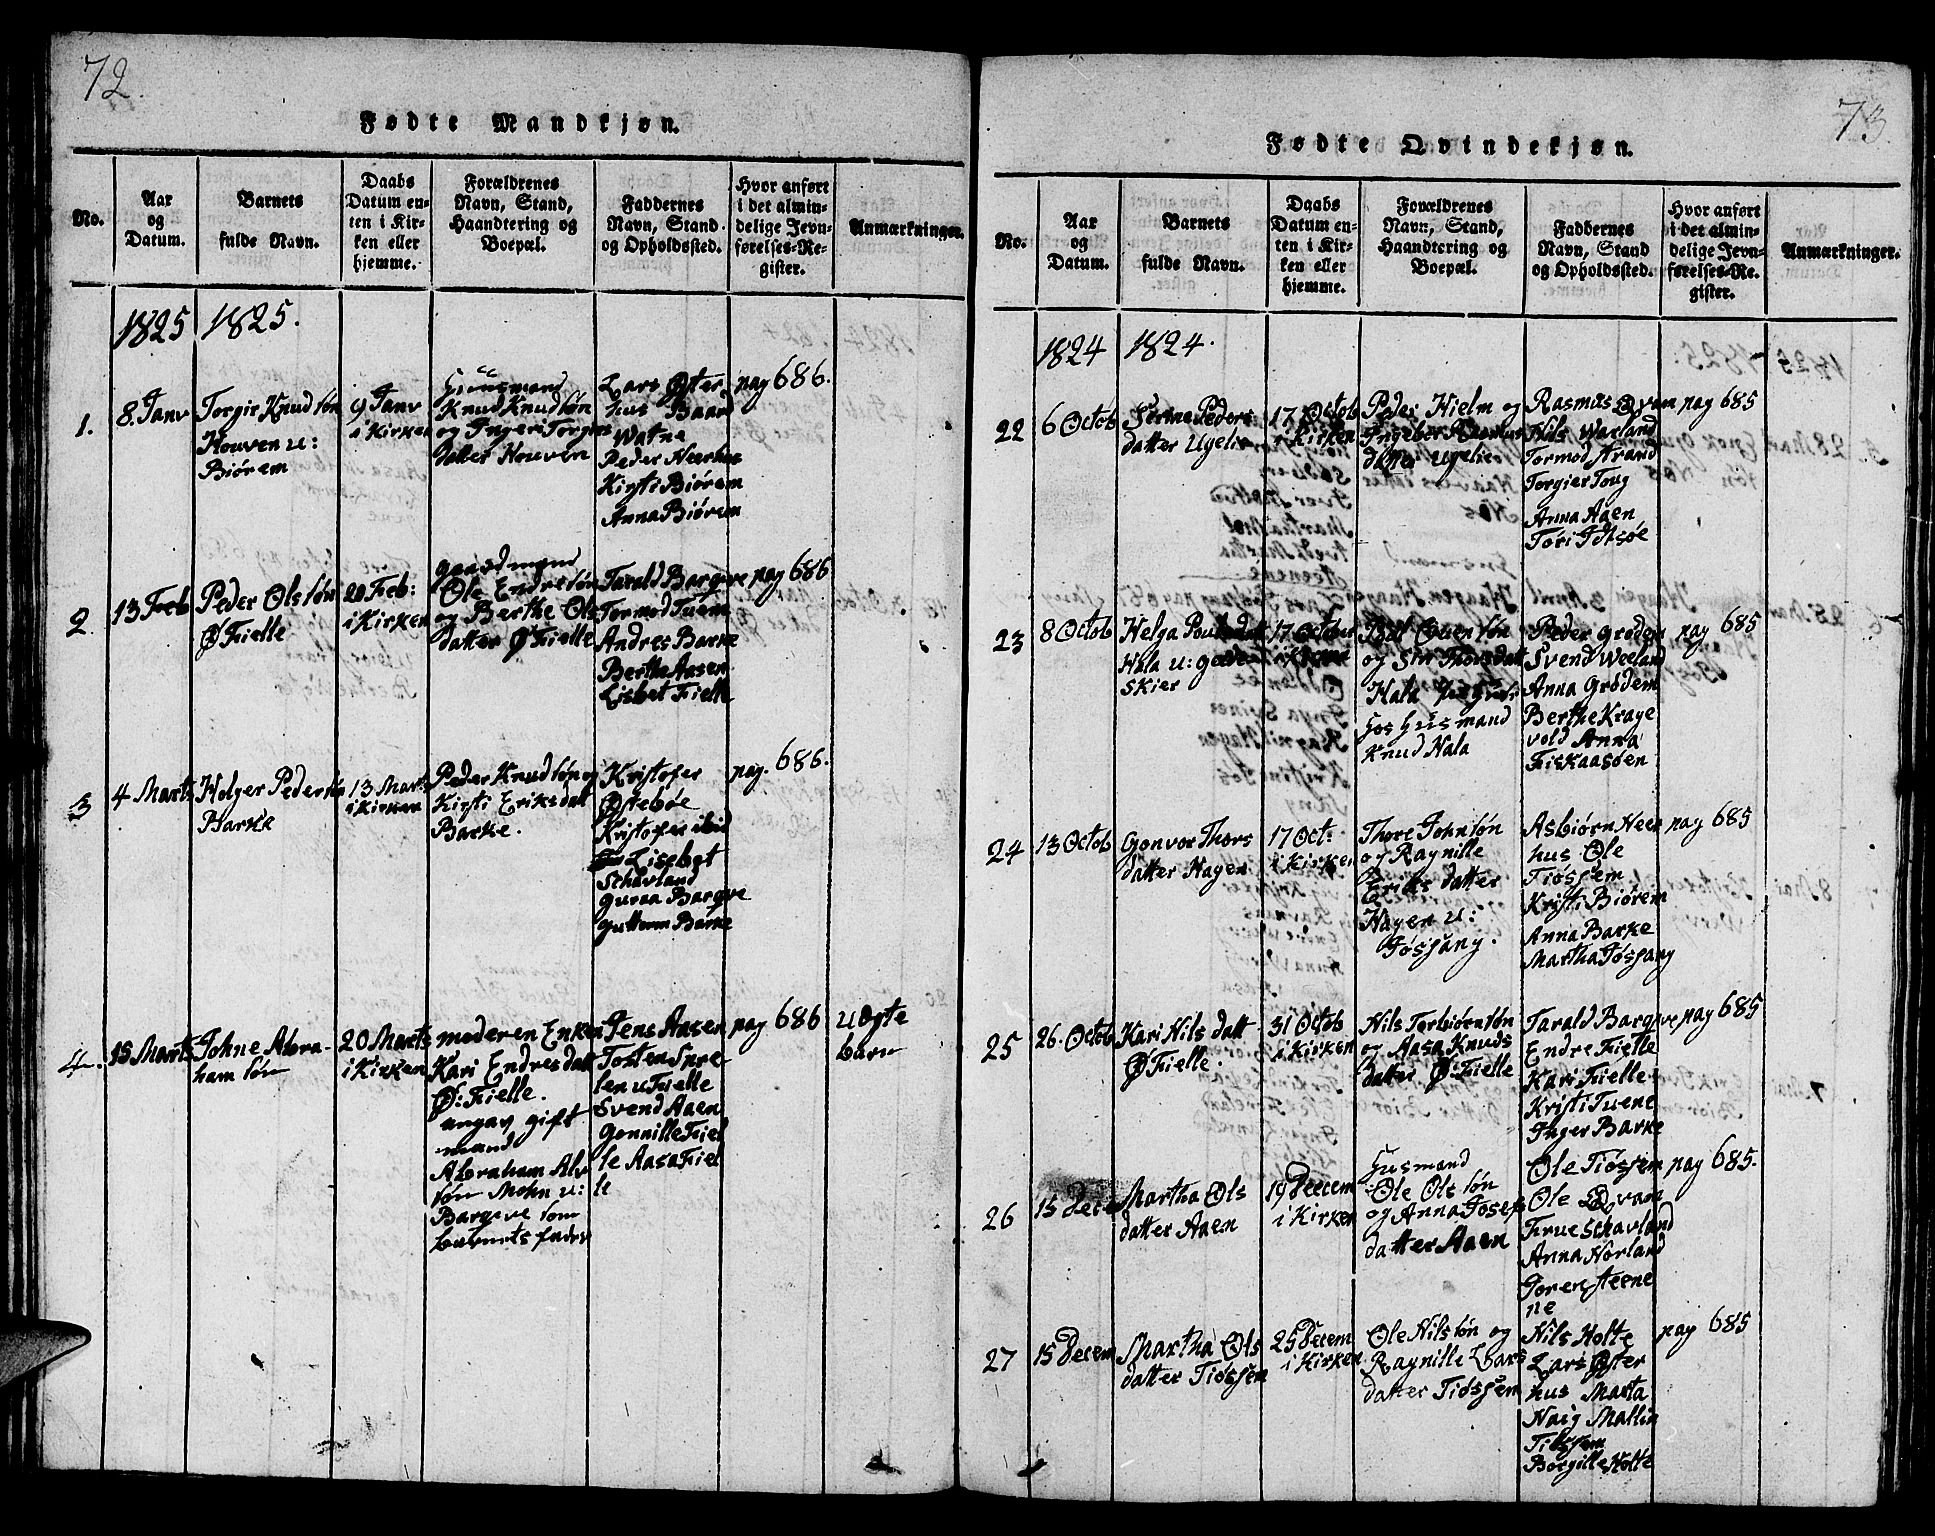 72.
Fødte Mandkjøn.
No.
Aar
og
Datum.
Barnets
fulde Navn.
Daabs
Datum en-
ten i Kir-
ken eller
hjemme.
Forældrenes
Navn, Stand,
Haandtering og
Boepæl.
Faddernes
Navn, Stand
og Opholdssted.
Hvor anført
i det almin-
delige Jevn-
førelses-Re-
gister.
Anmærkninger.
1825
1825.
1.
8. Janv
Torgir Knudsøn
Houven u:
Biørem
9 Janv
i Kirken
Huusmand
Knud Knudsøn
og Ingeri Torgirs
datter Houven
Lars Øster
hus Baard
Watne
Peder Neerhus
Kirsti Biørem
Anna Biørem
pag 686.
2.
13 Feb
Peder Olssøn
Ø Fielle
20 Feb:
i Kirken
gaardmand
Ole Endresøn
og Berthe Ols
datter Ø Fielle
Tarald Bargeve
Tormod Tuem
Andres Barke
Berthe Aasen
Lisbet Fielle
pag 686
3
4 Marts
Holger Pedersøn
Barke
13 Marts
i Kirken
Peder Knudsøn og
Kirsti Eriksdatt
Barke.
Kristofer
Østebøe
Kristofer ibid
Lisebet
Schavland
Guroa Bargve
Guttorm Barke
pag. 686.
4.
15 Marts
Johne Abra-
ham søn
20 Marts
i Kirken
moderen Enken
Kari Endresdatt
Ø: Fielle.
angav gift
mand
Abraham Alv
søn Mohn u:
Bargeve som
barnets fader
Jens Aasen
Tosten Spre-
len u Fielle
Svend Aaen
Gonnille Fiel
le Aasa Fiel
le
pag 686
Uægte
barn
73.
Fødte Qvindekjøn.
No.
Aar
og
Datum.
Barnets
fulde Navn.
Daabs
Datum en-
ten i Kir-
ken eller
hjemme.
Forældrenes
Navn, Stand,
Haandtering og
Boepæl.
Faddernes
Navn, Stand
og Opholdssted.
Hvor anført
i det almin-
delige Jevn-
førelses-Re-
gister.
Anmærkninger.
1824
1824.
22
6 Octob
Serina Peders
datter Ugelie
17 Octob
i Kirken
Peder Hielm og
Ingebor Rasmus
datter Ugelie
Rasmus Qvam
Nils Warland
Tormod Strand
Torgier Toug
Anna Aaen
Tori Idsøe
pag 685
23
8 Octob
Helga Poulsdatt
Hala u:
Skier
17 Octobr
i Kirken
og Siri Thorsdatt
Hala
hos Huusmand
Knud Hala
Peder Grødem
Svend Weeland
Anna Grødem
Berthe Krage
vold Anna
Fiskaasøen
pag 685
24
13 Octob
Gonvor Thors
datter Hagen
17 Oct:
i Kirken
Thore Johnsøn
og Ragnille
Eriks datter
Hagen u:
Fossang.
Asbiørn Neer
hus Ole
Tiøssem
Kristi Biørem
Anna Barke
Martha Fossang
pag 685
25
26. Octob
Kari Nils datt
Ø Fielle.
31 Octob
i Kirken
Nils Torbiørnsøn
og Aasa Knuds
datter Ø: Fielle
Tarald Bargeve
Endre Fielle
Kari Fielle
Kristi Tuene
Inger Barke
pag 685
26
15 Decem
Martha Ols
datter Aaen
19 Decem
i Kirken
Husmand
Ole Ols søn
og Anna Josefs
datter Aaen
Ole Tiøssem
Ole Qvam
Frue Schavland
Anna Norland
Toren Steene
ne
pag 685.
27
15 Decem
Martha Ols
datter Tiøssem
25 Decem
i Kirken
Ole Nilssøn og
Ragnille Lars
datter Tiøssem
Nils Holte
Lars Øster
hus Marta
Naig Mallin
Tiøssem
Borgille Holte
pag 685